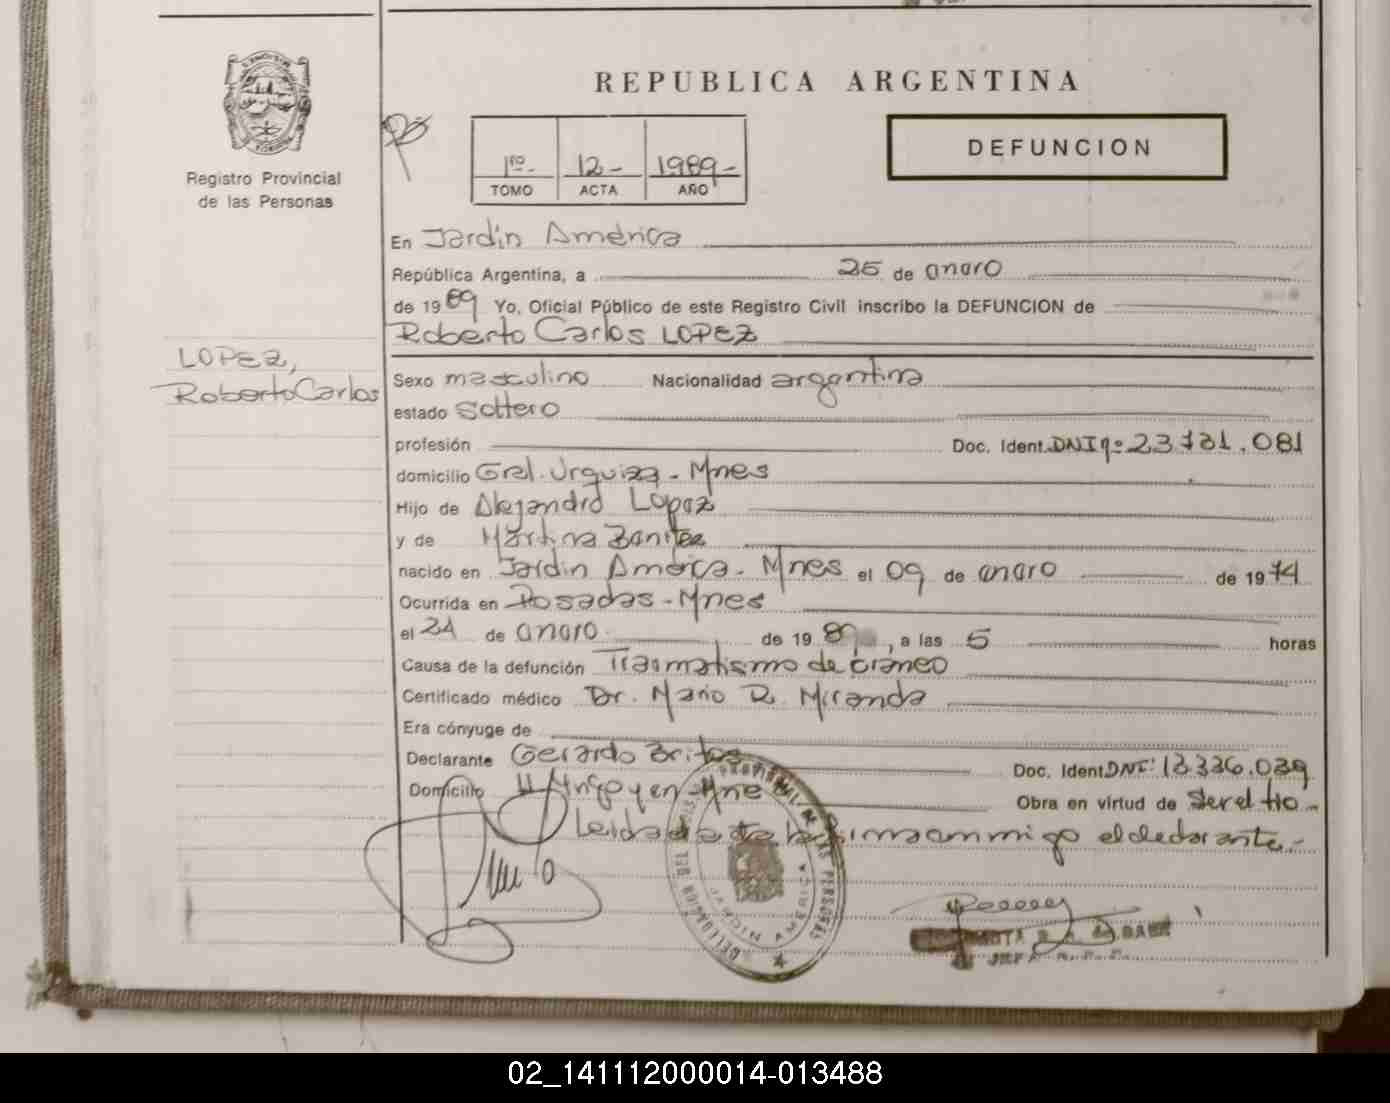 REPUBLICA ARGENTINA
Registro Provincial
de las Personas
1ro- 12- 1989-
TOMO ACTA AÑO
DEFUNCION
En Jardín América
República Argentina, a 25 de enero
de 1989 Yo, Oficial Público de este Registro Civil inscribo la DEFUNCION de
Roberto Carlos LOPEZ
LOPEZ,
Roberto Carlos
Sexo masculino Nacionalidad argentina
estado soltero
profesión Doc. Ident. DNI nº 23.781.081
domicilio Gral. Urquiza - Mnes
Hijo de Alejandro Lopez
y de Martina Benitez
nacido en Jardin América - Mnes el 09 de enero de 1974
Ocurrida en Posadas - Mnes
el 24 de enero de 1989, a las 5 horas
Causa de la defunción Traumatismo de craneo
Certificado médico Dr. Mario R. Miranda
Era cónyuge de
Declarante Gerardo Britos Doc. Ident DNI: 13.336.039
Domicilio H. Yrigoyen - Mne Obra en virtud de ser el tio -
Leida acta la firma conmigo el declarante. -
JARDIN AMERICA
02_141112000014-013488